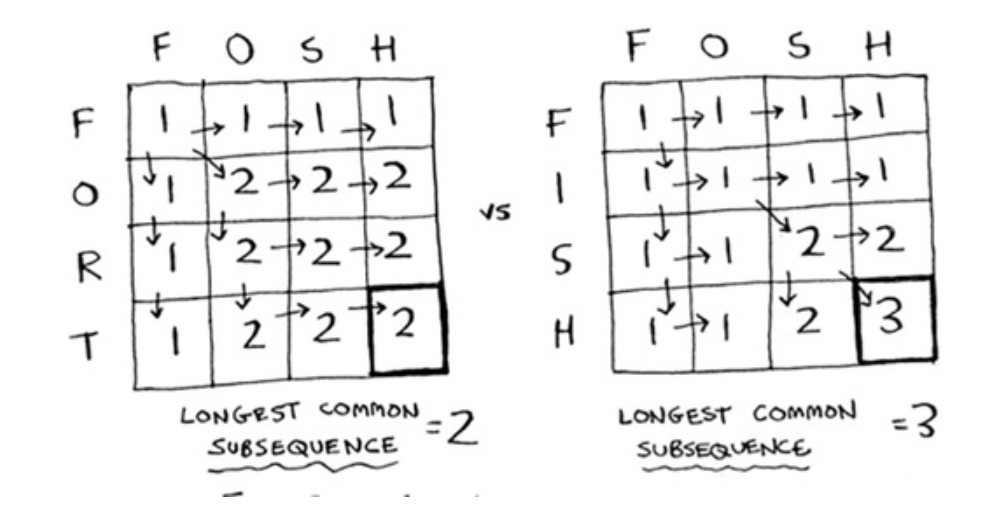 F O S H
F 1 → 1 → 1 → 1
O 1 2 → 2 → 2
R 1 2 → 2 → 2
T 1 2 → 2 → 2
LONGEST COMMON
SUBSEQUENCE
=2
vs
F O S H
F 1 → 1 → 1 → 1
I 1 → 1 → 1 → 1
S 1 → 1 2 → 2
H 1 → 1 2 3
LONGEST COMMON
SUBSEQUENCE
=3